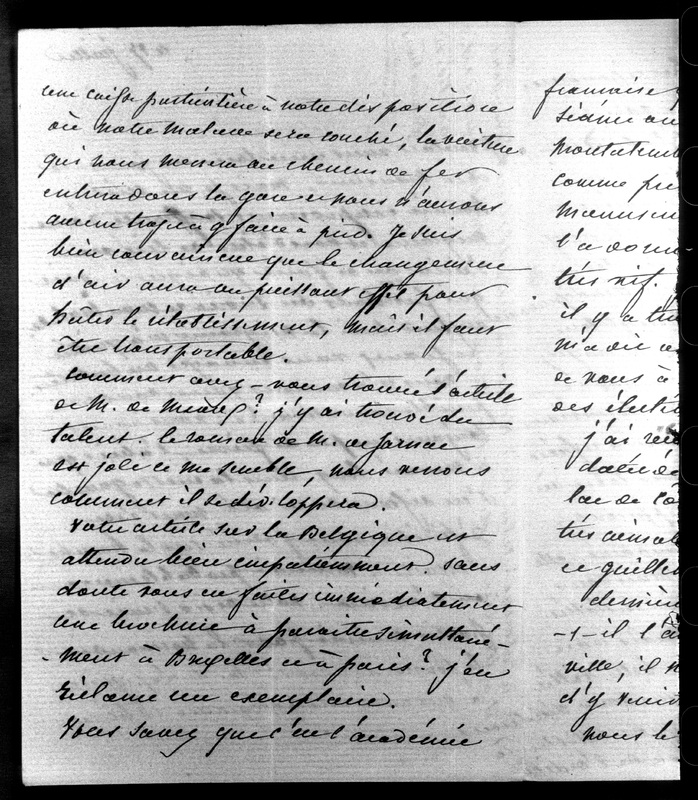 une caisse particulière à notre disposition
où notre malade sera couché, la voiture
qui nous menera au chemin de fer
entrera dans la gare et nous n'aurons
aucun trajet à faire à pied. Je suis
bien convaincue que le changement
d'air aura un puissant effet pour
hâter le rétablissement, mais il faut
être transportable.
Comment avez-vous trouvé l'article
de M. de ? j'y ai trouvé du
talent. le roman de M. de Jarnac
est joli ce me semble, nous verrons
comment il se développera.
Votre article sur la Belgique est
attendu bien impatiemment. sans
doute vous en faites immédiatement
une brochure à paraitre simultané-
ment à Bruxelles et à paris? j'en
réclame un exemplaire.
Vous savez que c'est l'académie
française
montalemb
comme
l'a
très vif.
il y a
m'a dit
de vous à
des électi
j'ai
lac de Cô
très aimab
ce
dernièr
-t-il l'
ville, il
d'y
nous